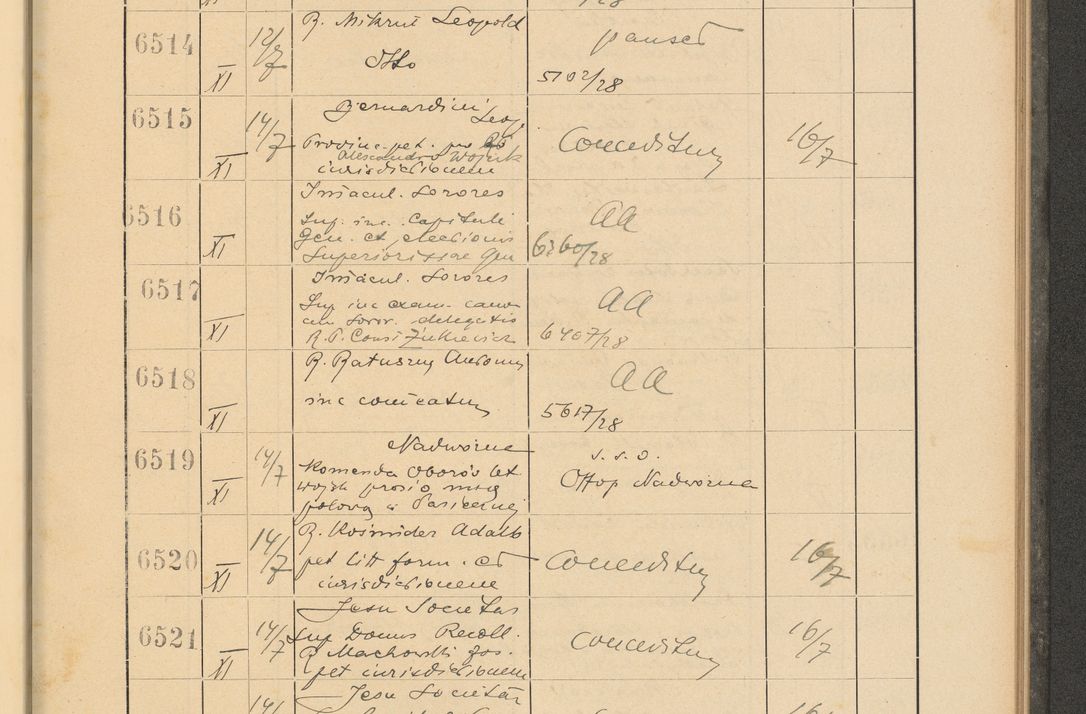 6514 12/7 XI R. Mikrut Leopold
Otto
pauset
5102/28
6515 14/7 XI Bernardini Leop.
Provinc. pet. pro
Alexandro Wojcik
iurisdictionem
Conceditur 16/7
6516 XI Immacul. Sorores
Sup. inc. Capituli
Gen. et electionis
Superiorissae Gen
aa
6260/28
6517 XI Immacul. Sorores
Sup inc exam. canon
cum soror. delegatio
R. P. Consi Żukiewicz
aa
6407/28
6518 XI R. Ratuszny Antoni
inc
aa
5617/28
6519 14/7 XI Nadwórna
Komenda Oborów let
wojsk prosi o mszę
polową w Pasiecznej
s. s. o.
Nadwórna
6520 14/7 XI R. Kośmider Adalb
pet litt form. et
iurisdictionem
Conceditur 16/7
6521 14/7 XI Jesu Societas
Sup Domus Recoll.
R Machowski Jos.
pet iurisdictionem
Conceditur 16/7
Jesu Societas